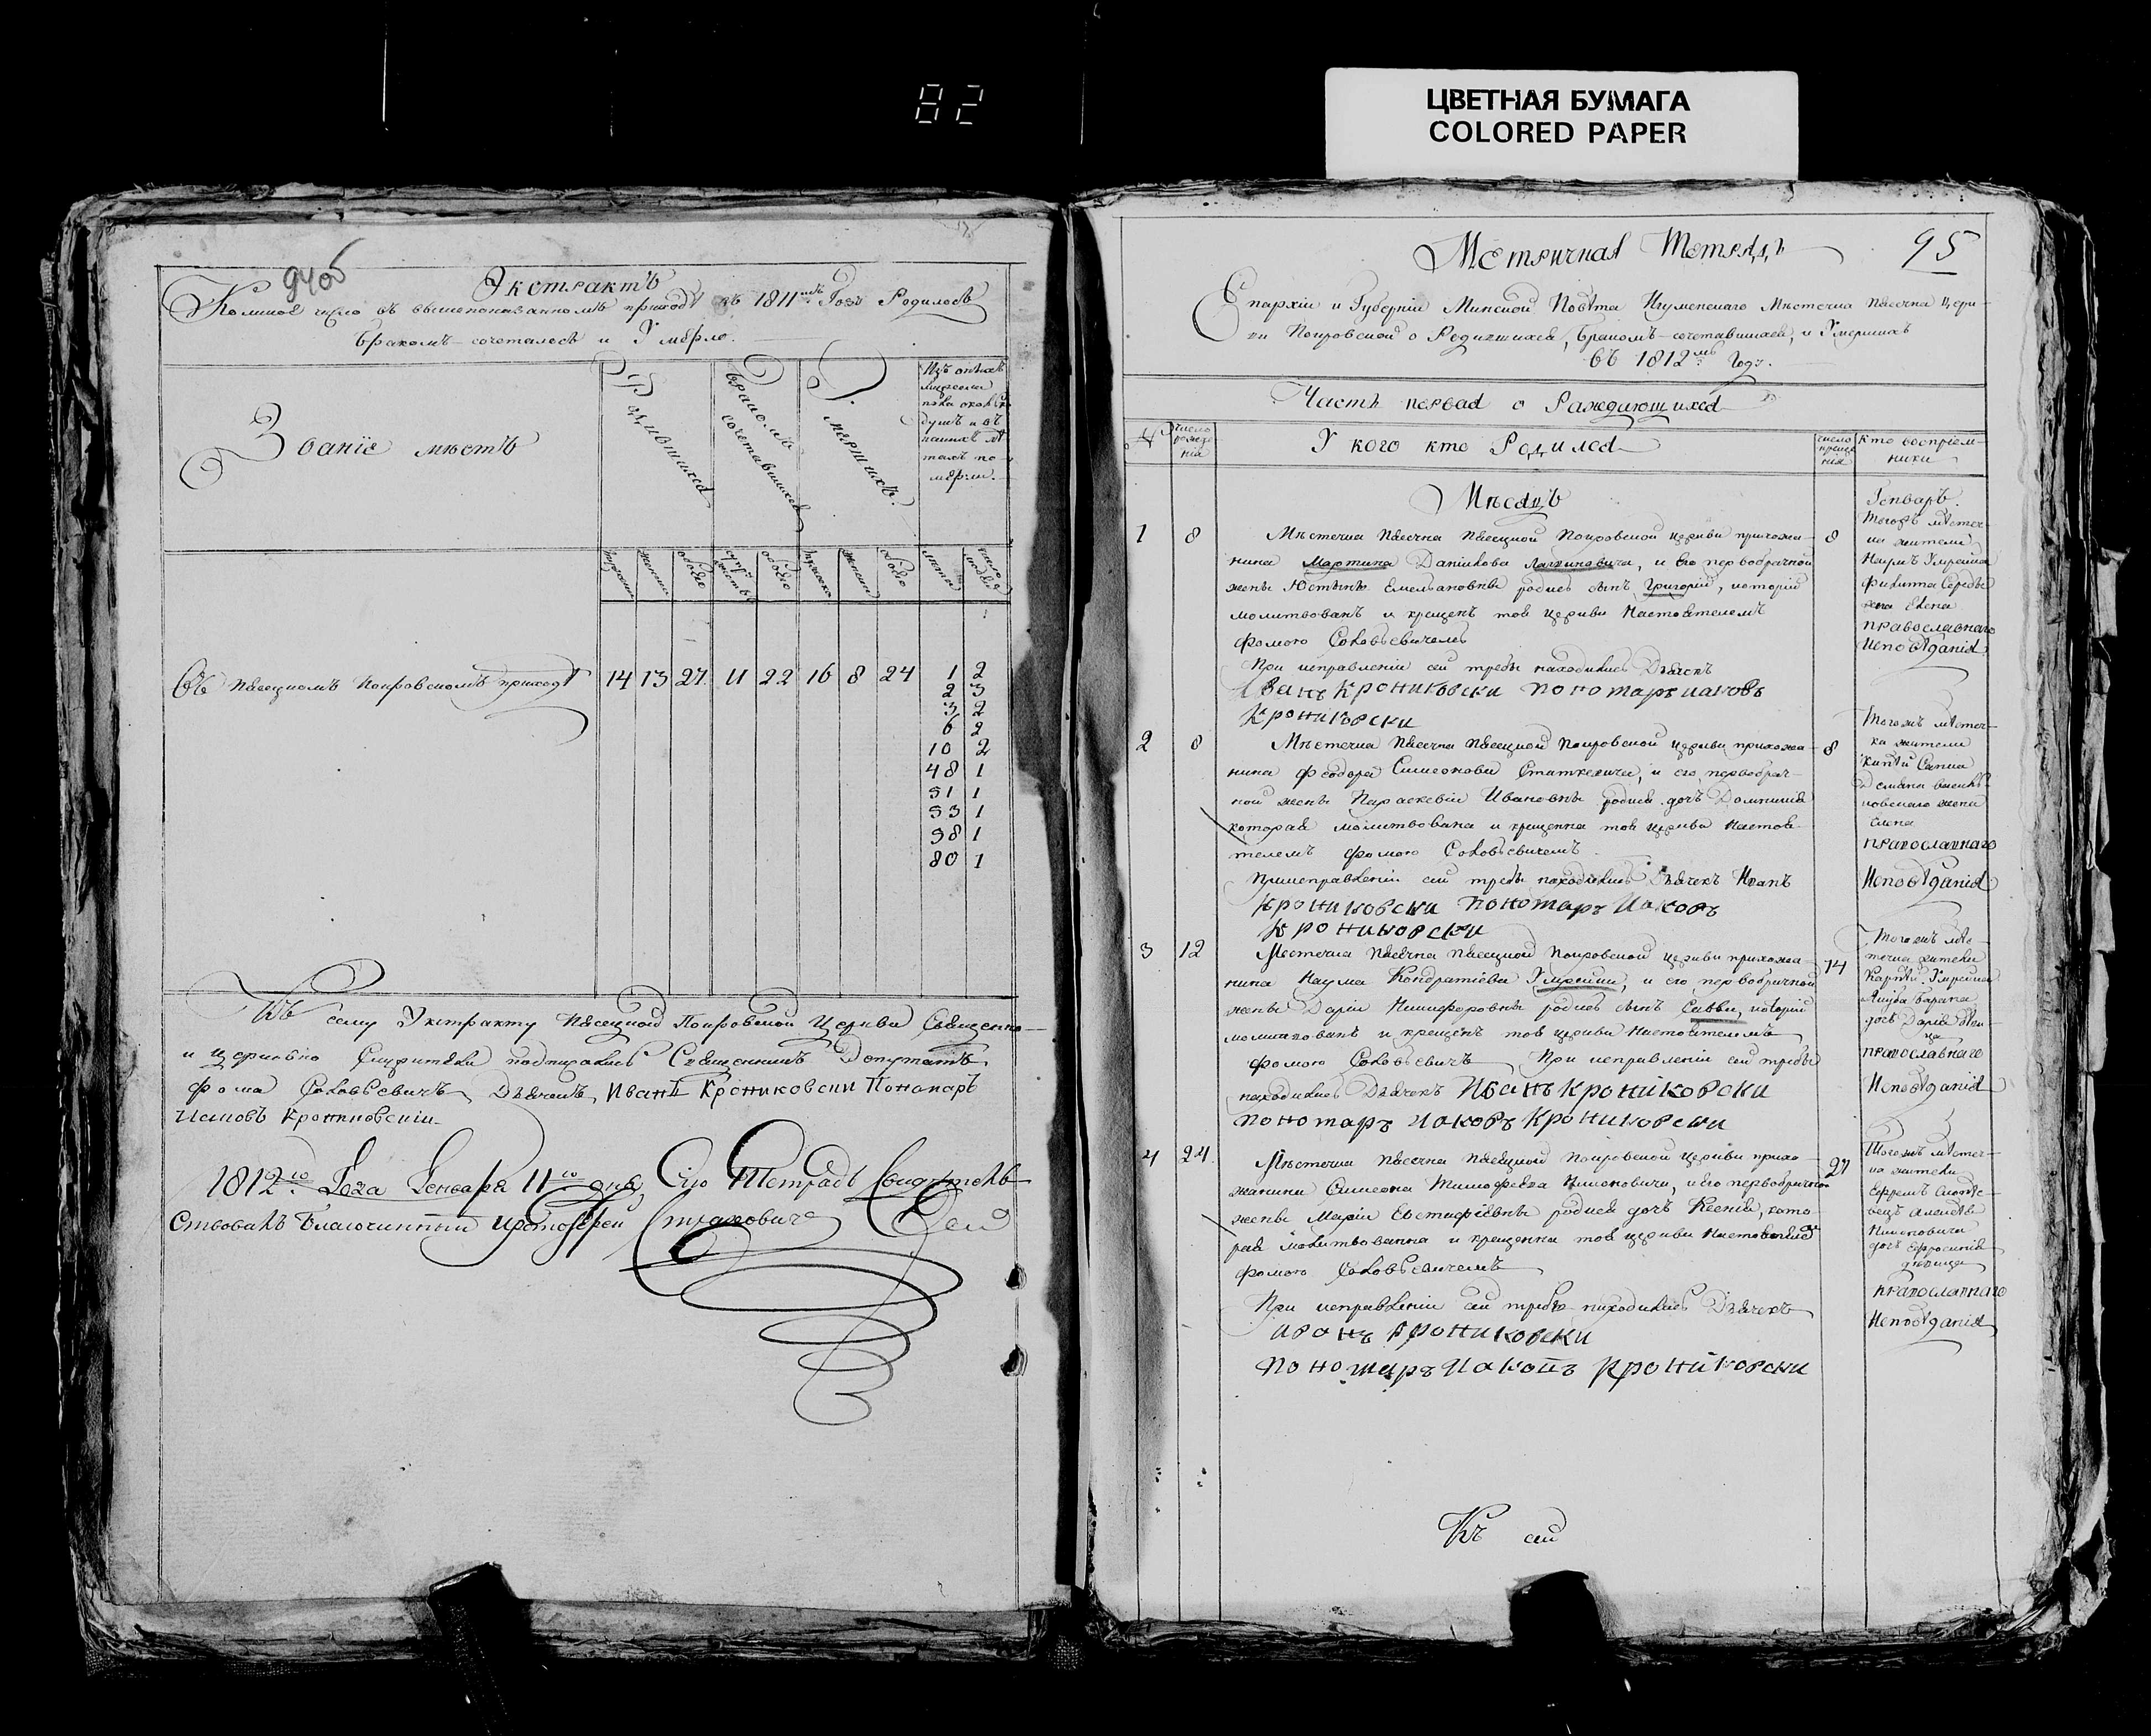 82
ЦВЕТНАЯ БУМАГА
COLORED PAPER
94об
Экстрактъ
Коликое число въ вышепоказанномъ приходѣ въ 1811мъ Годѣ Родилось
бракомъ сочеталось и Умерло.
Званіе мѣстъ
Родившихся
бракомъ сочетавшихся
Умершихъ
обоего
обоего
обоего
лѣта
Въ Пѣсецкомъ Покровскомъ приходѣ 14 13 27. 11 22 16 8 24 1 2
2 3
3 2
6 2
10 2
48 1
51 1
53 1
58 1
80 1
Къ сему Экстракту Пѣсецкой Покровской Церкви Священно
и церковно Служители подписались Священникъ Депутатъ
Фома Соловьевичъ, Дьячокъ, Иванъ Крониковски Пономаръ
Иаковъ Крониковскіи
1812го Года Генваря 11го дня, Сію Тетрадь Свидѣтель
ствовалъ Благочинный протоіерей
95
Метричная Тетрадь
Епархіи и Губерніи Минской Повѣта Игуменскаго Мѣстечка Пѣсечна Церк
ви Покровской о Родившихся, бракомъ сочетавшихся, и Умершихъ
въ 1812мъ Годѣ.
Часть первая о Раждающихся
№
число рожденія
У кого кто Родился
число крещенія
Кто воспріем
ники
Мѣсяцъ
Генварь
1 8 Мѣстечка Пѣсечна Пѣсецкой Покровской церкви прихожа 8
нина Мартина Данилова, и его первобрачной
жены Юстины Емельяновны родился сынъ Григорій, который
молитвованъ и крещенъ той церкви Настоятелемъ
Фомою Соловьевичемъ
При исправленіи сей требы находились Дьячекъ
Иванъ Крониковски пономаръ Иаковъ
Крониковски
Тогожъ мѣстеч
ка жители
Наумъ
Елена
православнаго
Исповѣданія
2 8 Мѣстечка Пѣсечна Пѣсецкой Покровской церкви прихожа 8
нина Феодора Симеонова Статкевича, и его первобрач
ной жены Параскевіи Ивановны родися дочь Домникія
которая молитвована и крещенна той церкви Настоя
телемъ Фомою Соловьевичемъ
При исправленіи сей требы находились Дьячекъ Иванъ
Крониковски пономаръ Иаковъ
Крониковски
Тогожъ мѣстеч
ка жители
жена
Елена
православнаго
Исповѣданія
3 12 Мѣстечка Пѣсечна Пѣсецкой Покровской церкви прихожа 14
нина Наума Кондратіева, и его первобрачной
жены Даріи Никифоровны родися сынъ Савва, который
молитвованъ и крещенъ той церкви Настоятелемъ
Фомою Соловьевичъ При исправленіи сей требы
находились Дьячекъ Иванъ Крониковски
пономаръ Иаковъ Крониковски
Тогожъ мѣс
течка жители
дочь Дарія
православнаго
Исповѣданія
4 24. Мѣстечка Пѣсечна Пѣсецкой Покровской церкви прихо 27
жанина Симеона Тимофеева, и его первобрачной
жены Маріи Евстафіевны родися дочь Ксенія, кото
рая молитвованна и крещенна той церкви Настоятелемъ
Фомою Соловьевичемъ
При исправленіи сей требы находились Дьячекъ
Иванъ Крониковски
пономаръ Иаковъ Крониковски
Тогожъ мѣстеч
ка жители
Ефремъ
дочь Ефросинія
дѣвица
православнаго
Исповѣданія
Къ сей